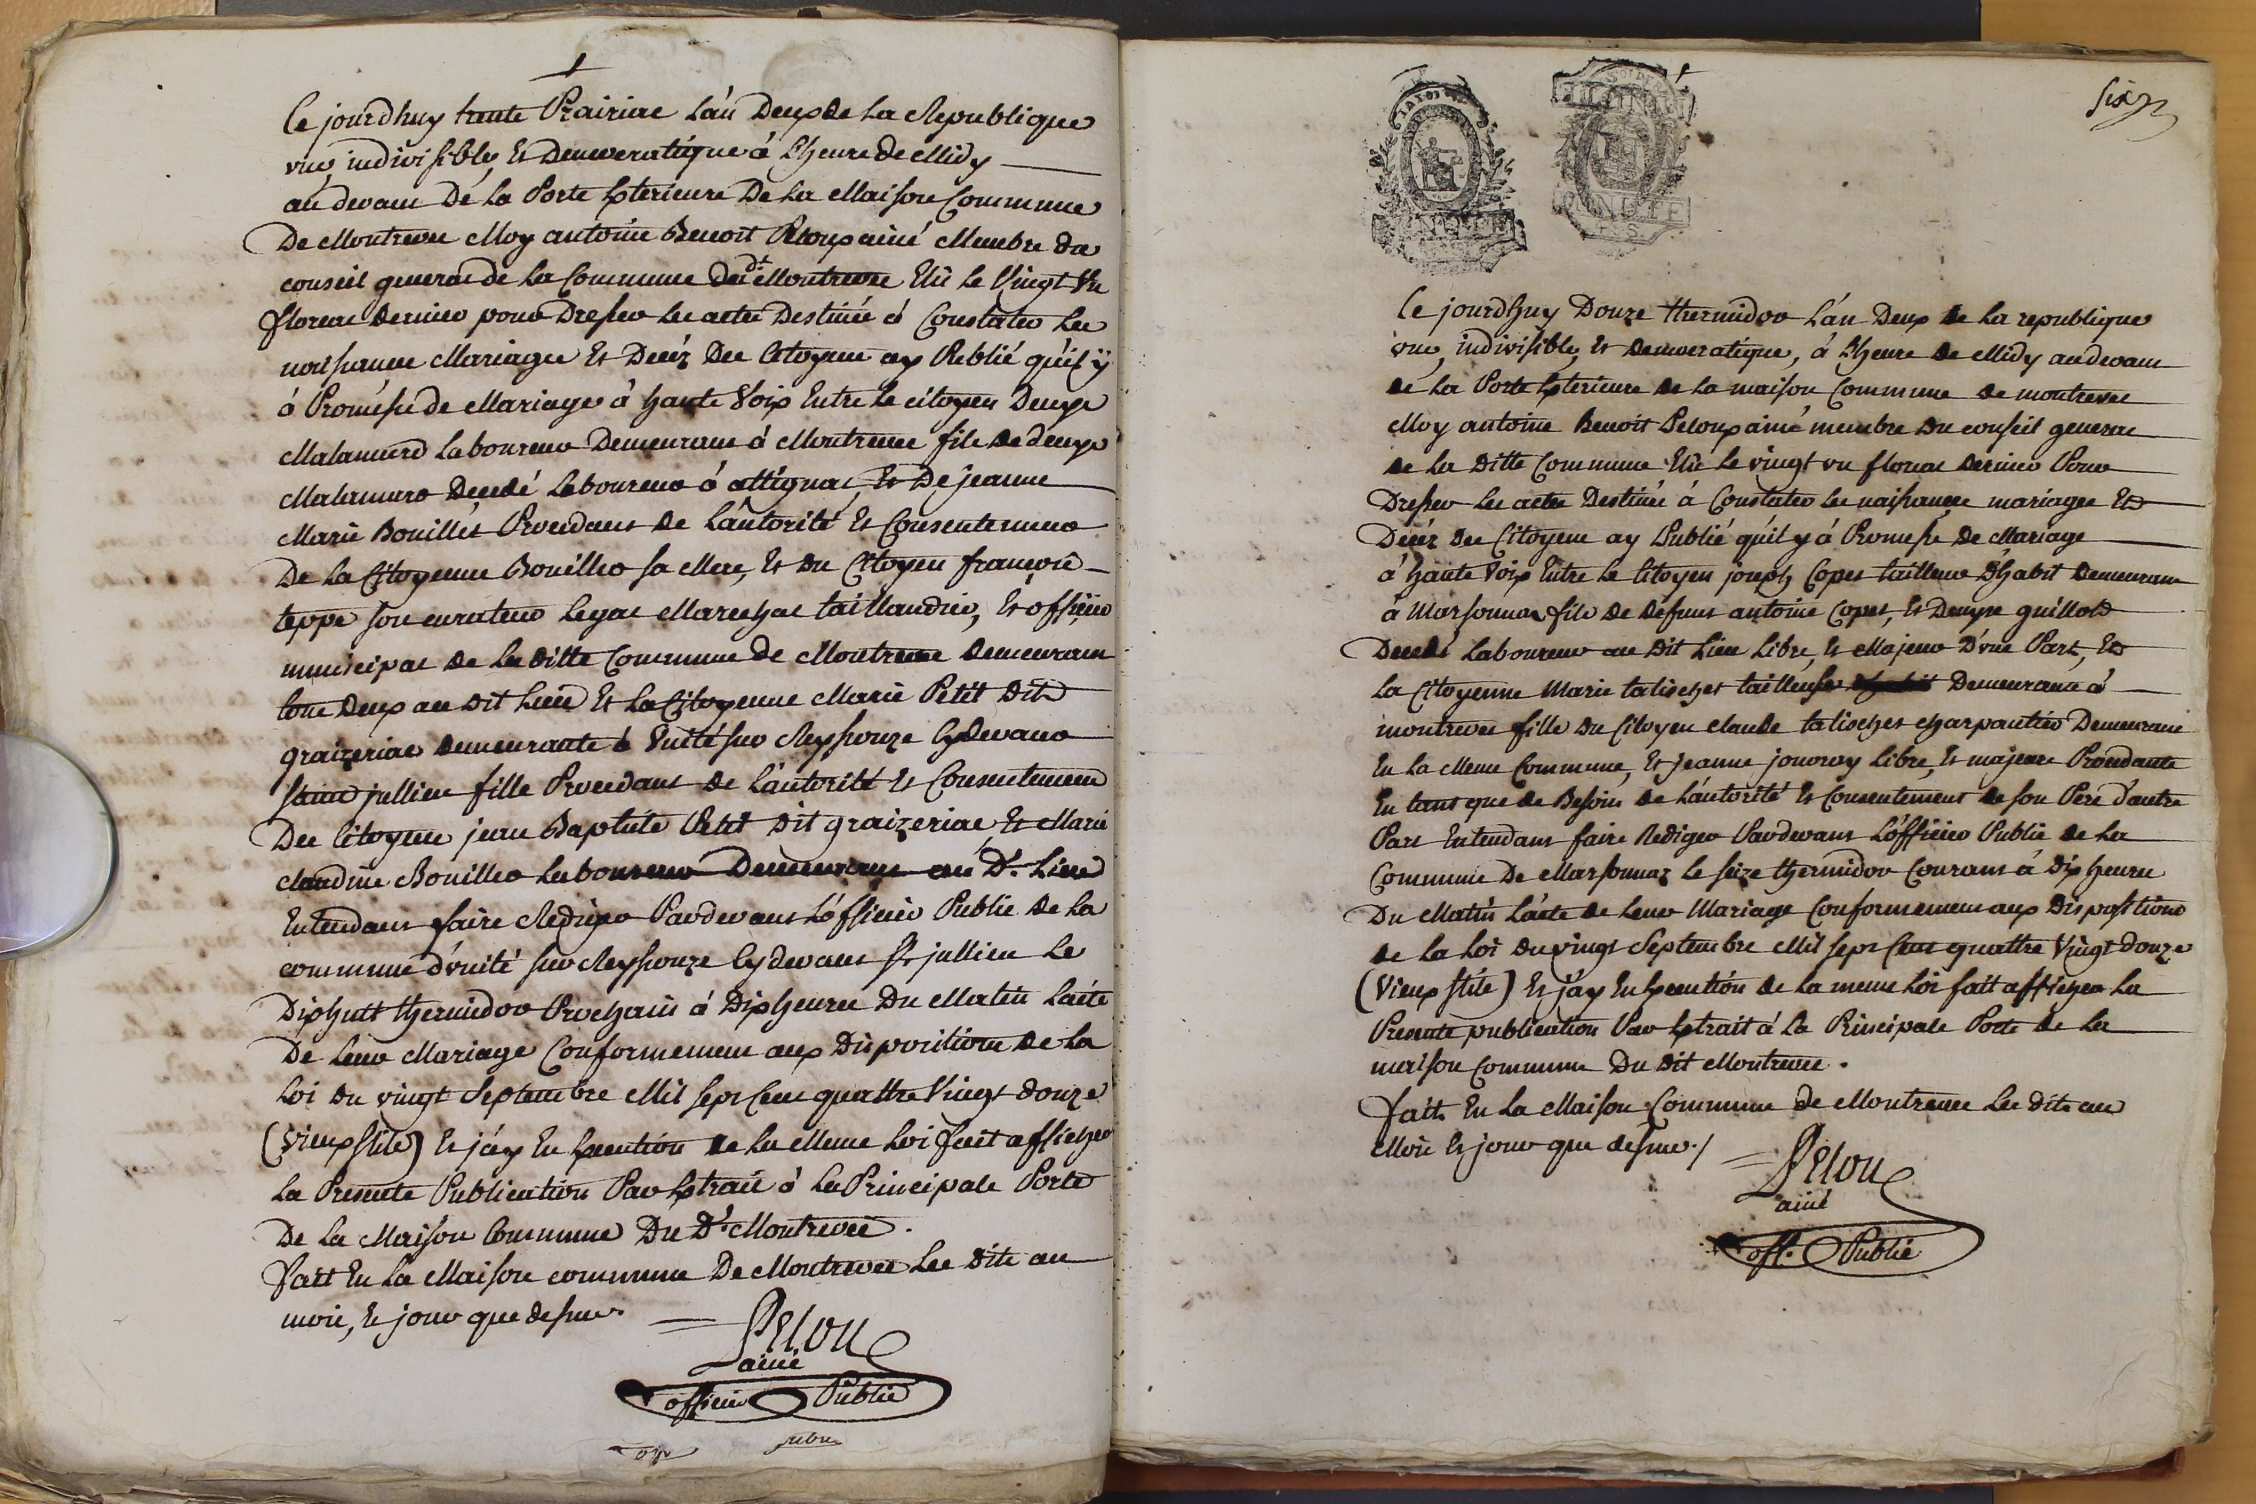 Ce jourdhuy trante Prairial L'an Deux de La Republique
une, indivisible, Et Democratique à L'heure de Midy
au devant De la Porte Exterieure De La Maison Commune
De Montrevel Moy antoine Benoit Peloux ainé Membre du
conseil general de La Commune du dt Montrevel Elû Le Vingt Un
floreal dernier pour Dresser les actes Destinés à Constater Les
naissances Mariages Et Décéz Des Citoyens ay Publié qu'il ÿ
à Promésse de Mariage à haute Voix Entre Le citoyen Denys
Malamard Laboureur Demeurant à Montrevel fils de denys
Malamard Decedé Laboureur à attignat, Et De jeanne
Marie Bouillet Procedant de L'autorité Et Consentement
De La Citoyenne Bouillet sa Mere, Et du Citoyen françois
teppe son curateur Legal Marechal taillandier, Et officier
municipal de La ditte Commune de Montrevel demeurant
tous deux au dit Lieu Et La Citoyenne Marie Petit dit
graizeriat demeurante à Unité sur Reyssouze Cydevant
Saint jullien fille Procedant de L'autorité Et Consentement
Des Citoyens jean Baptiste Petit dit graizeriat Et Marie
claudine Bouillet Laboureur Demeurant au Dt. Lieu
Entendant faire Rediger Pardevant L'officier Public de La
commune d'unité sur Reyssouze Cydevant St jullien Le
Dixhuit thermidor Prochain à Dix heures Du Matin L'acte
De Leur Mariage Conformement aux Dispositions de La
Loi du vingt Septembre Mil Sept Cent quattre Vingt douze
(vieux stile) Et j'ay En Execution de La Meme Loi fait afficher
La Presente Publication Par Extrait à La Principale Porte
De La Maison Commune Du Dt. Montrevel.
fait En La Maison commune De Montrevel Les dits an
mois, Et jour que dessus.
Pelou
ainé
officier Public
Six
Ce jourdhuy Douze thermidor L'an Deux de La republique
une, indivisible, Et democratique, à L'heure de Midy audevant
de La Porte Exterieure de La maison Commune de montrevel
Moy antoine Benoit Peloux ainé membre du conseil general
de La ditte Commune Elû Le vingt un floreal dernier Pour
Dresser les actes Destinés à Constater les naissances mariages Et
Décéz des Citoyens ay Publié qu'il y à Promesse de Mariage
à haute Voix Entre Le Citoyen joseph Copet tailleur d'habit demeurant
à Marsonnas fils de défunt antoine Copet, Et Denyse guillot
Decedé Laboureur au dit Lieu Libre, Et Majeur D'une Part, Et
La Citoyenne Marie talichet tailleuse Demeurante à
montrevel fille du Citoyen claude talichet charpantier Demeurant
En La Meme Commune, Et jeanne Libre, Et majeure Procedante
En tant que de Besoin de L'autorité Et Consentement de son Pere d'autre
Part Entendant faire Rediger Pardevant L'officier Public de La
Commune De Marsonnaz Le seize thermidor Courant à dix heures
Du Matin L'acte de Leur Mariage Conformement aux Dispositions
de La Loi du vingt Septembre Mil sept Cent quattre Vingt douze
(Vieux stile) Et j'ay En Execution de La meme Loi fait afficher La
Presente publication Par Extrait à La Principale Porte de La
maison Commune Du dit Montrevel.
fait En La Maison Commune de Montrevel Les dits an
Mois Et jour que dessus./
Pelou
ainé
off. Public